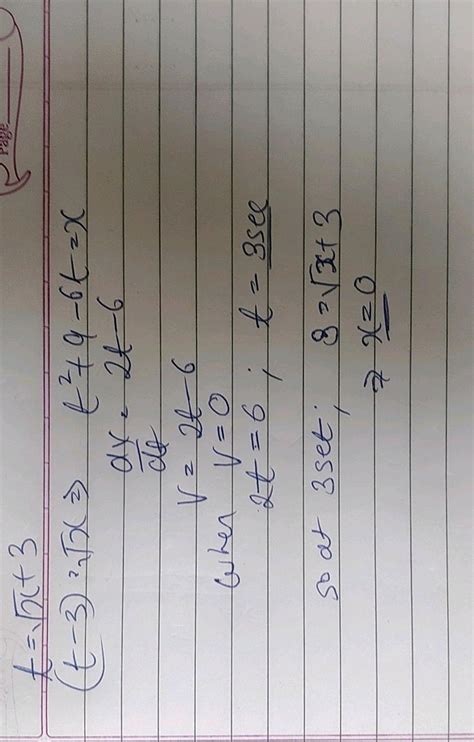 Page
t = √x + 3
(t - 3) = √x ⇒ t² + 9 - 6t = x
dx/dt = 2t - 6
V = 2t - 6
When V = 0
2t = 6 ; t = 3 sec
so at 3 sec ; 3 = √x + 3
⇒ x = 0